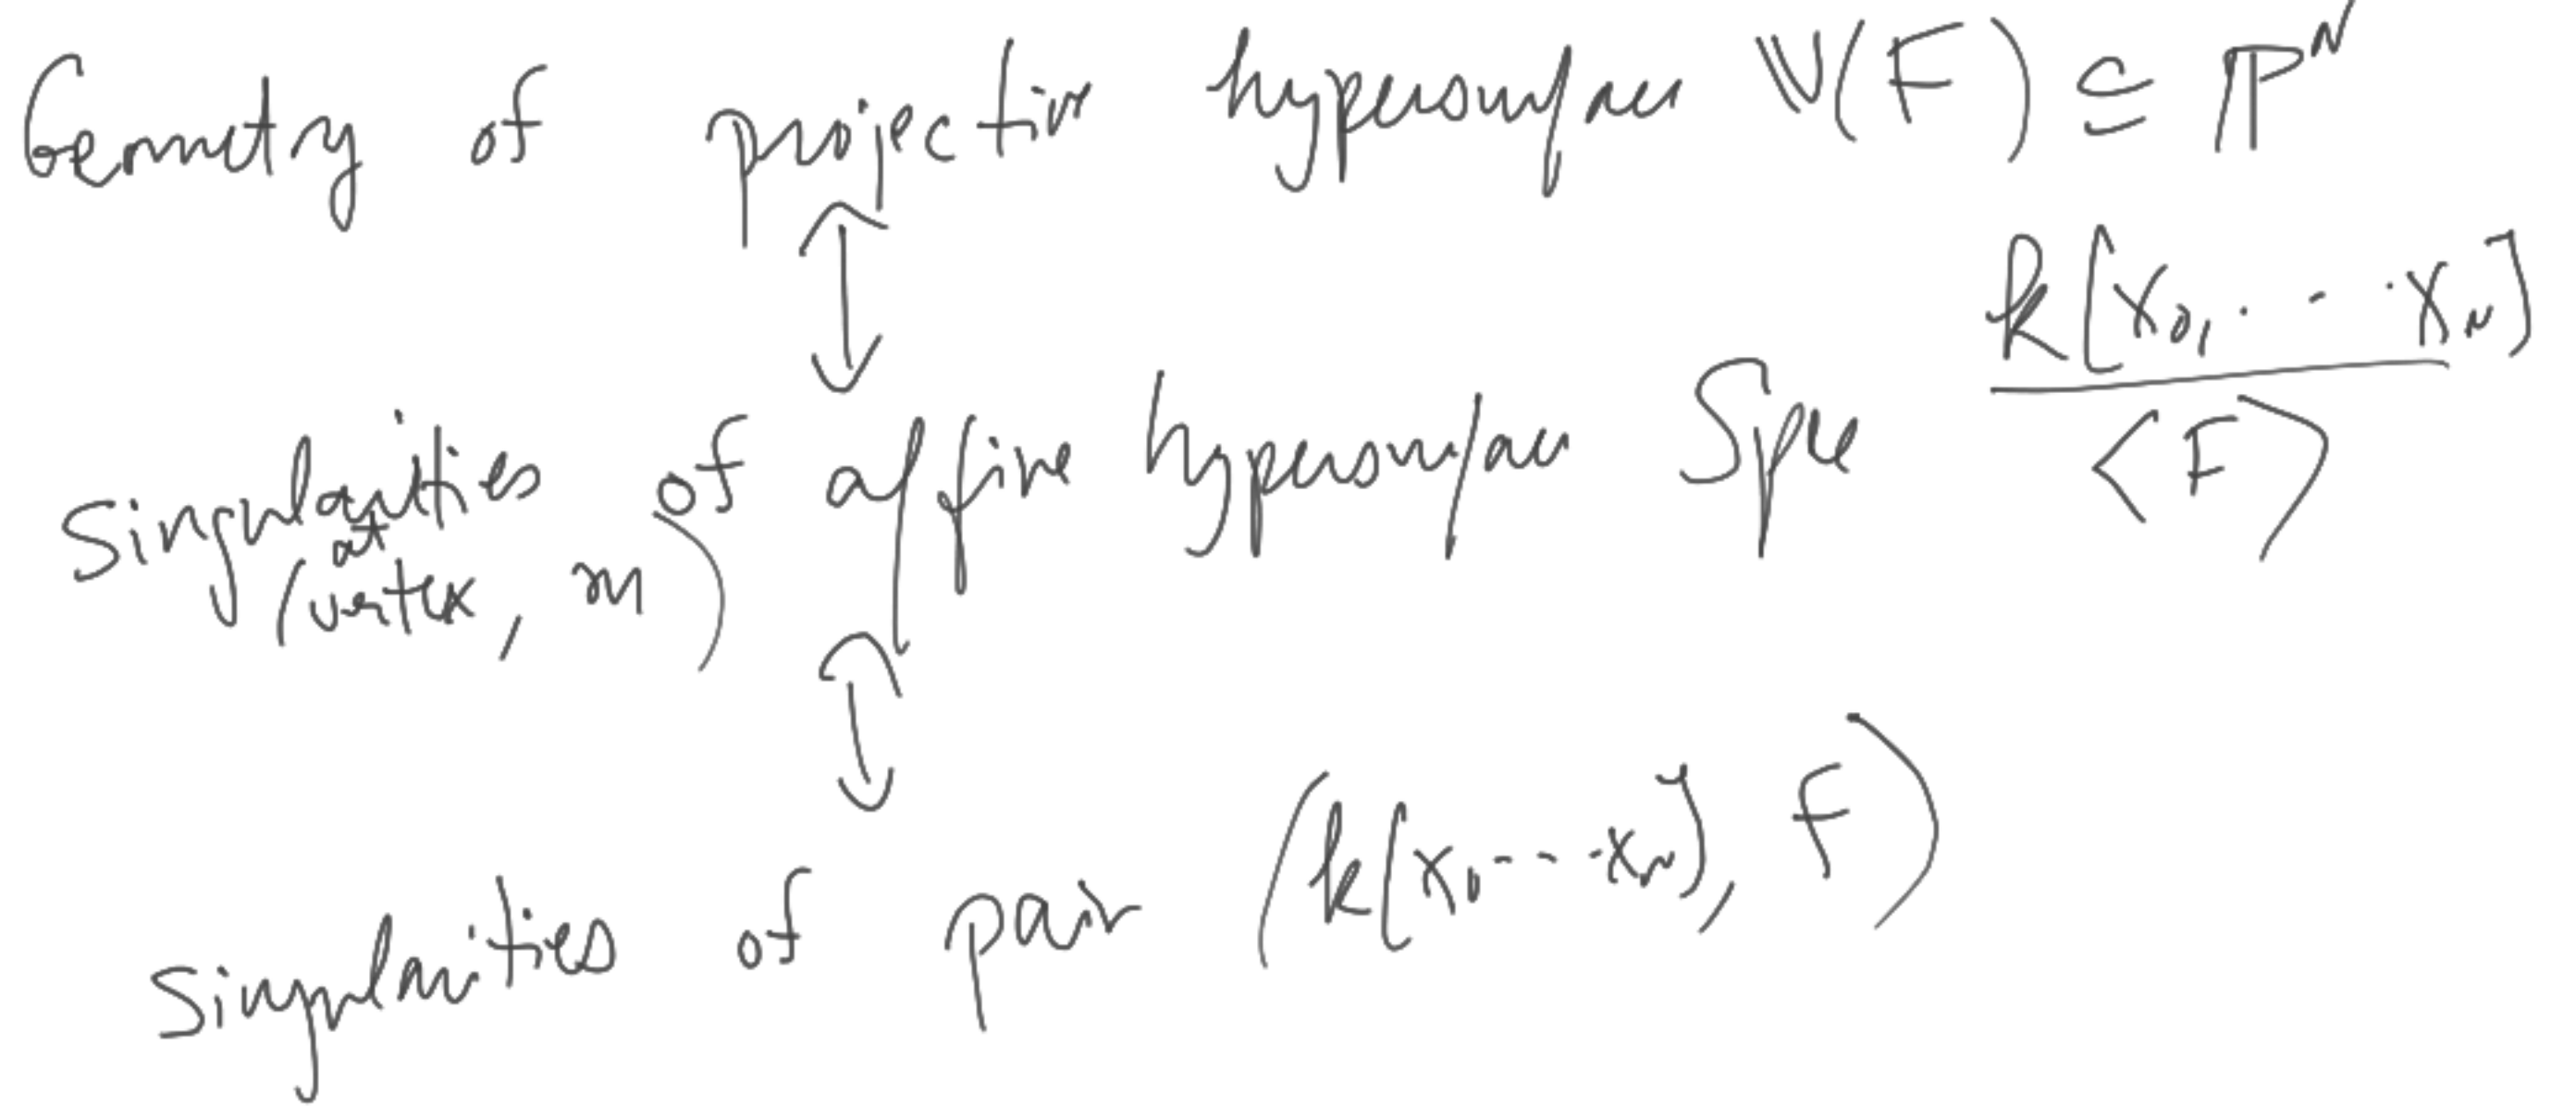 Geometry of projective hypersurfaces 𝕍(F) ⊆ ℙ^N
↕
Singularities of affine hypersurface Spec k[x₀, ... x_N] / <F>
(at vertex, m)
↕
Singularities of pair (k[x₀ ... x_N], F)